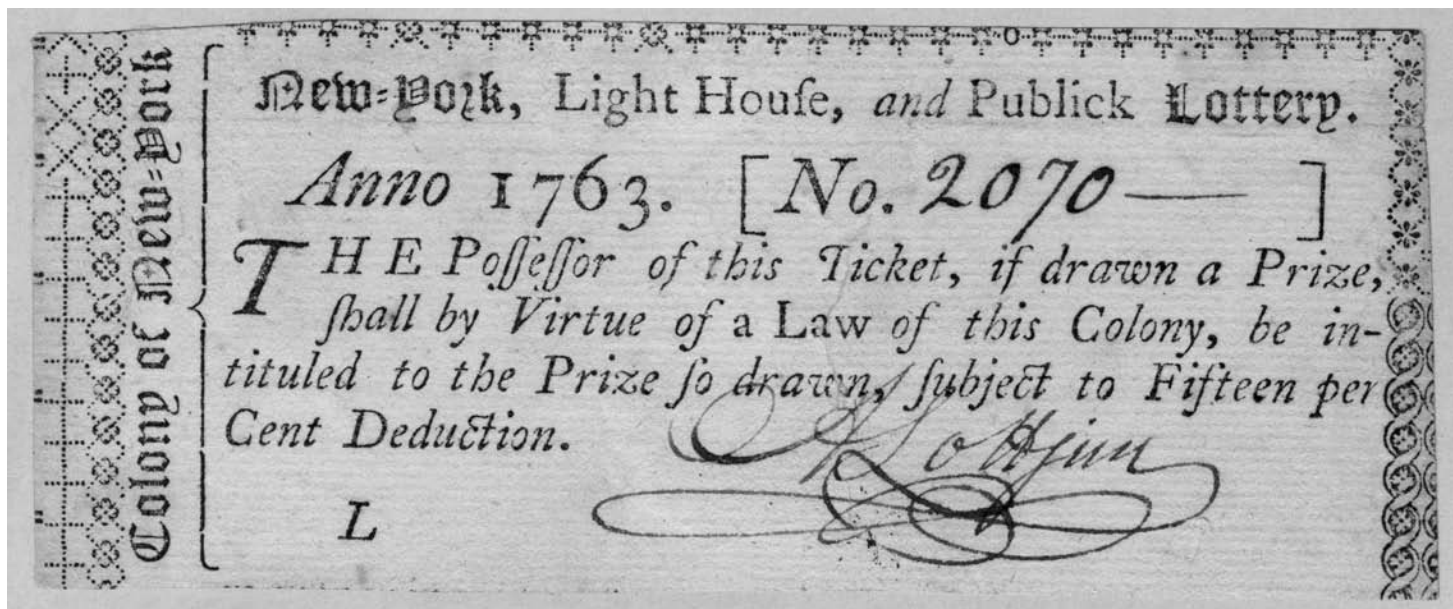 Colony of New-York
New-York, Light Houſe, and Publick Lottery.
Anno 1763. [No. 2070— ]
THE Poſſeſſor of this Ticket, if drawn a Prize,
ſhall by Virtue of a Law of this Colony, be in-
tituled to the Prize ſo drawn, ſubject to Fifteen per
Cent Deduction.
L